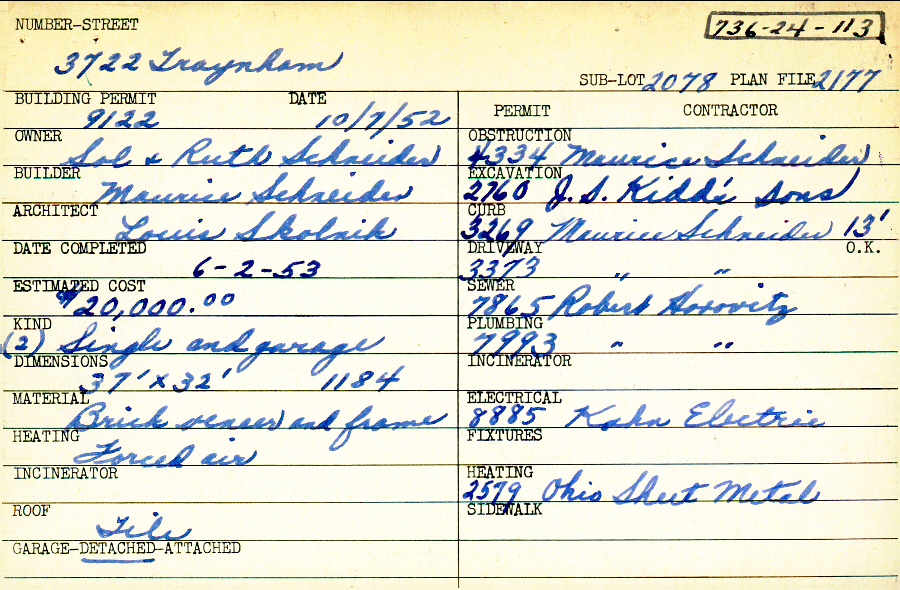 NUMBER-STREET
736-24-113
3722 Traynham
SUB-LOT 2078 PLAN FILE 2177
BUILDING PERMIT DATE
9122 10/7/52
OWNER
Sol & Ruth Schneider
BUILDER
Maurice Schneider
ARCHITECT
Louis Skolnik
DATE COMPLETED
6-2-53
ESTIMATED COST
$20,000.00
KIND
(2) Single and garage
DIMENSIONS
37' x 32' 1184
MATERIAL
Brick veneer and frame
HEATING
Forced air
INCINERATOR
ROOF
Tile
GARAGE-DETACHED-ATTACHED
PERMIT CONTRACTOR
OBSTRUCTION
4334 Maurice Schneider
EXCAVATION
2760 J. S. Kidd's Sons
CURB
3269 Maurice Schneider 13'
DRIVEWAY O.K.
3373 " "
SEWER
7865 Robert Horovitz
PLUMBING
7993 " "
INCINERATOR
ELECTRICAL
8885 Kahn Electric
FIXTURES
HEATING
2579 Ohio Sheet Metal
SIDEWALK